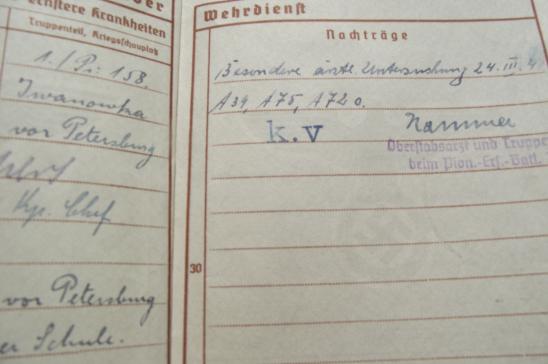 ernstere Krankheiten
Truppenteil, Kriegsschauplatz
1./Pi. 158.
Iwanowka
vor Petersburg
Kp. Chef
vor Petersburg
er Schule.
Wehrdienst
Nachträge
Besondere ärztl. Untersuchung 24. III. 4
A 39, A 75, A 72 o.
k.v
Oberstabsarzt und Truppe
beim Pion.-Ers.-Batl.
30